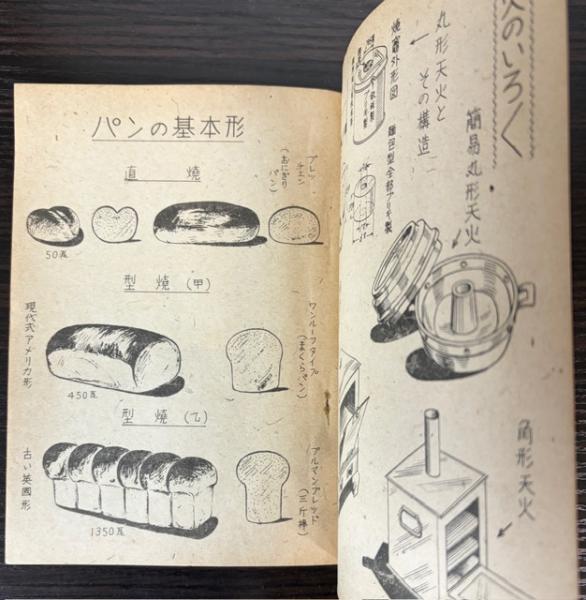 パンの基本形
直焼
ブレッチエン
(おにぎりパン)
50瓦
型焼(甲)
ワンローフタイプ
(まくらパン)
現代式アメリカ形
450瓦
型焼(乙)
アルマンブレッド
(三斤棒)
古い英國形
1350瓦
のいろ〱
丸形天火と
その構造
焼窯外形図
簡易丸形天火
角形天火